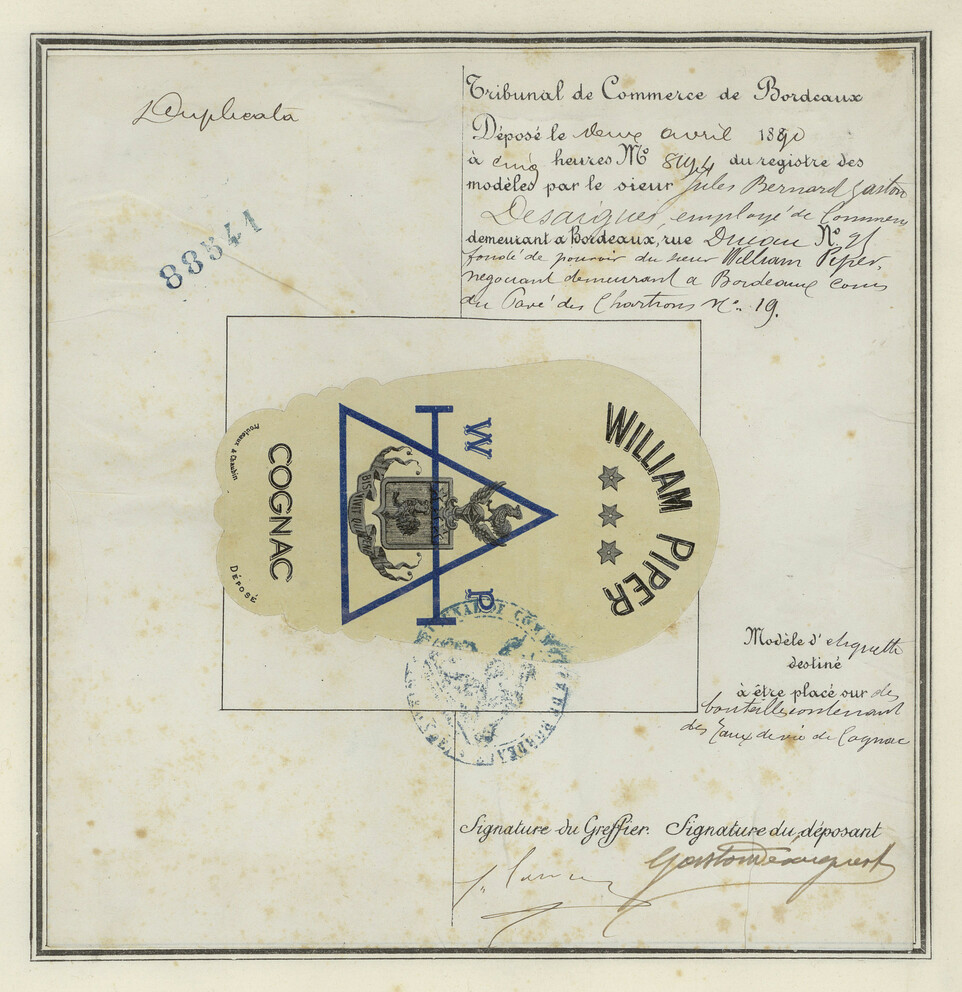 Duplicata
88541
Tribunal de Commerce de Bordeaux
Déposé le deux avril 1890
à cinq heures No du registre des
modèles par le sieur Jules Bernard Gaston
employé de Commerce
demeurant à Bordeaux, rue No
fondé de pouvoir du sieur William Piper,
négociant demeurant à Bordeaux cours
du Pavé des Chartrons No. 19.
WILLIAM PIPER
W P
BIS VIVIT QUI
COGNAC
DÉPOSÉ
TRIBUNAL DE COMMERCE DE BORDEAUX
Modèle d'etiquette
destiné
à être placé sur des
bouteilles contenant
des Eaux de vie de Cognac
Signature du Greffier. Signature du déposant